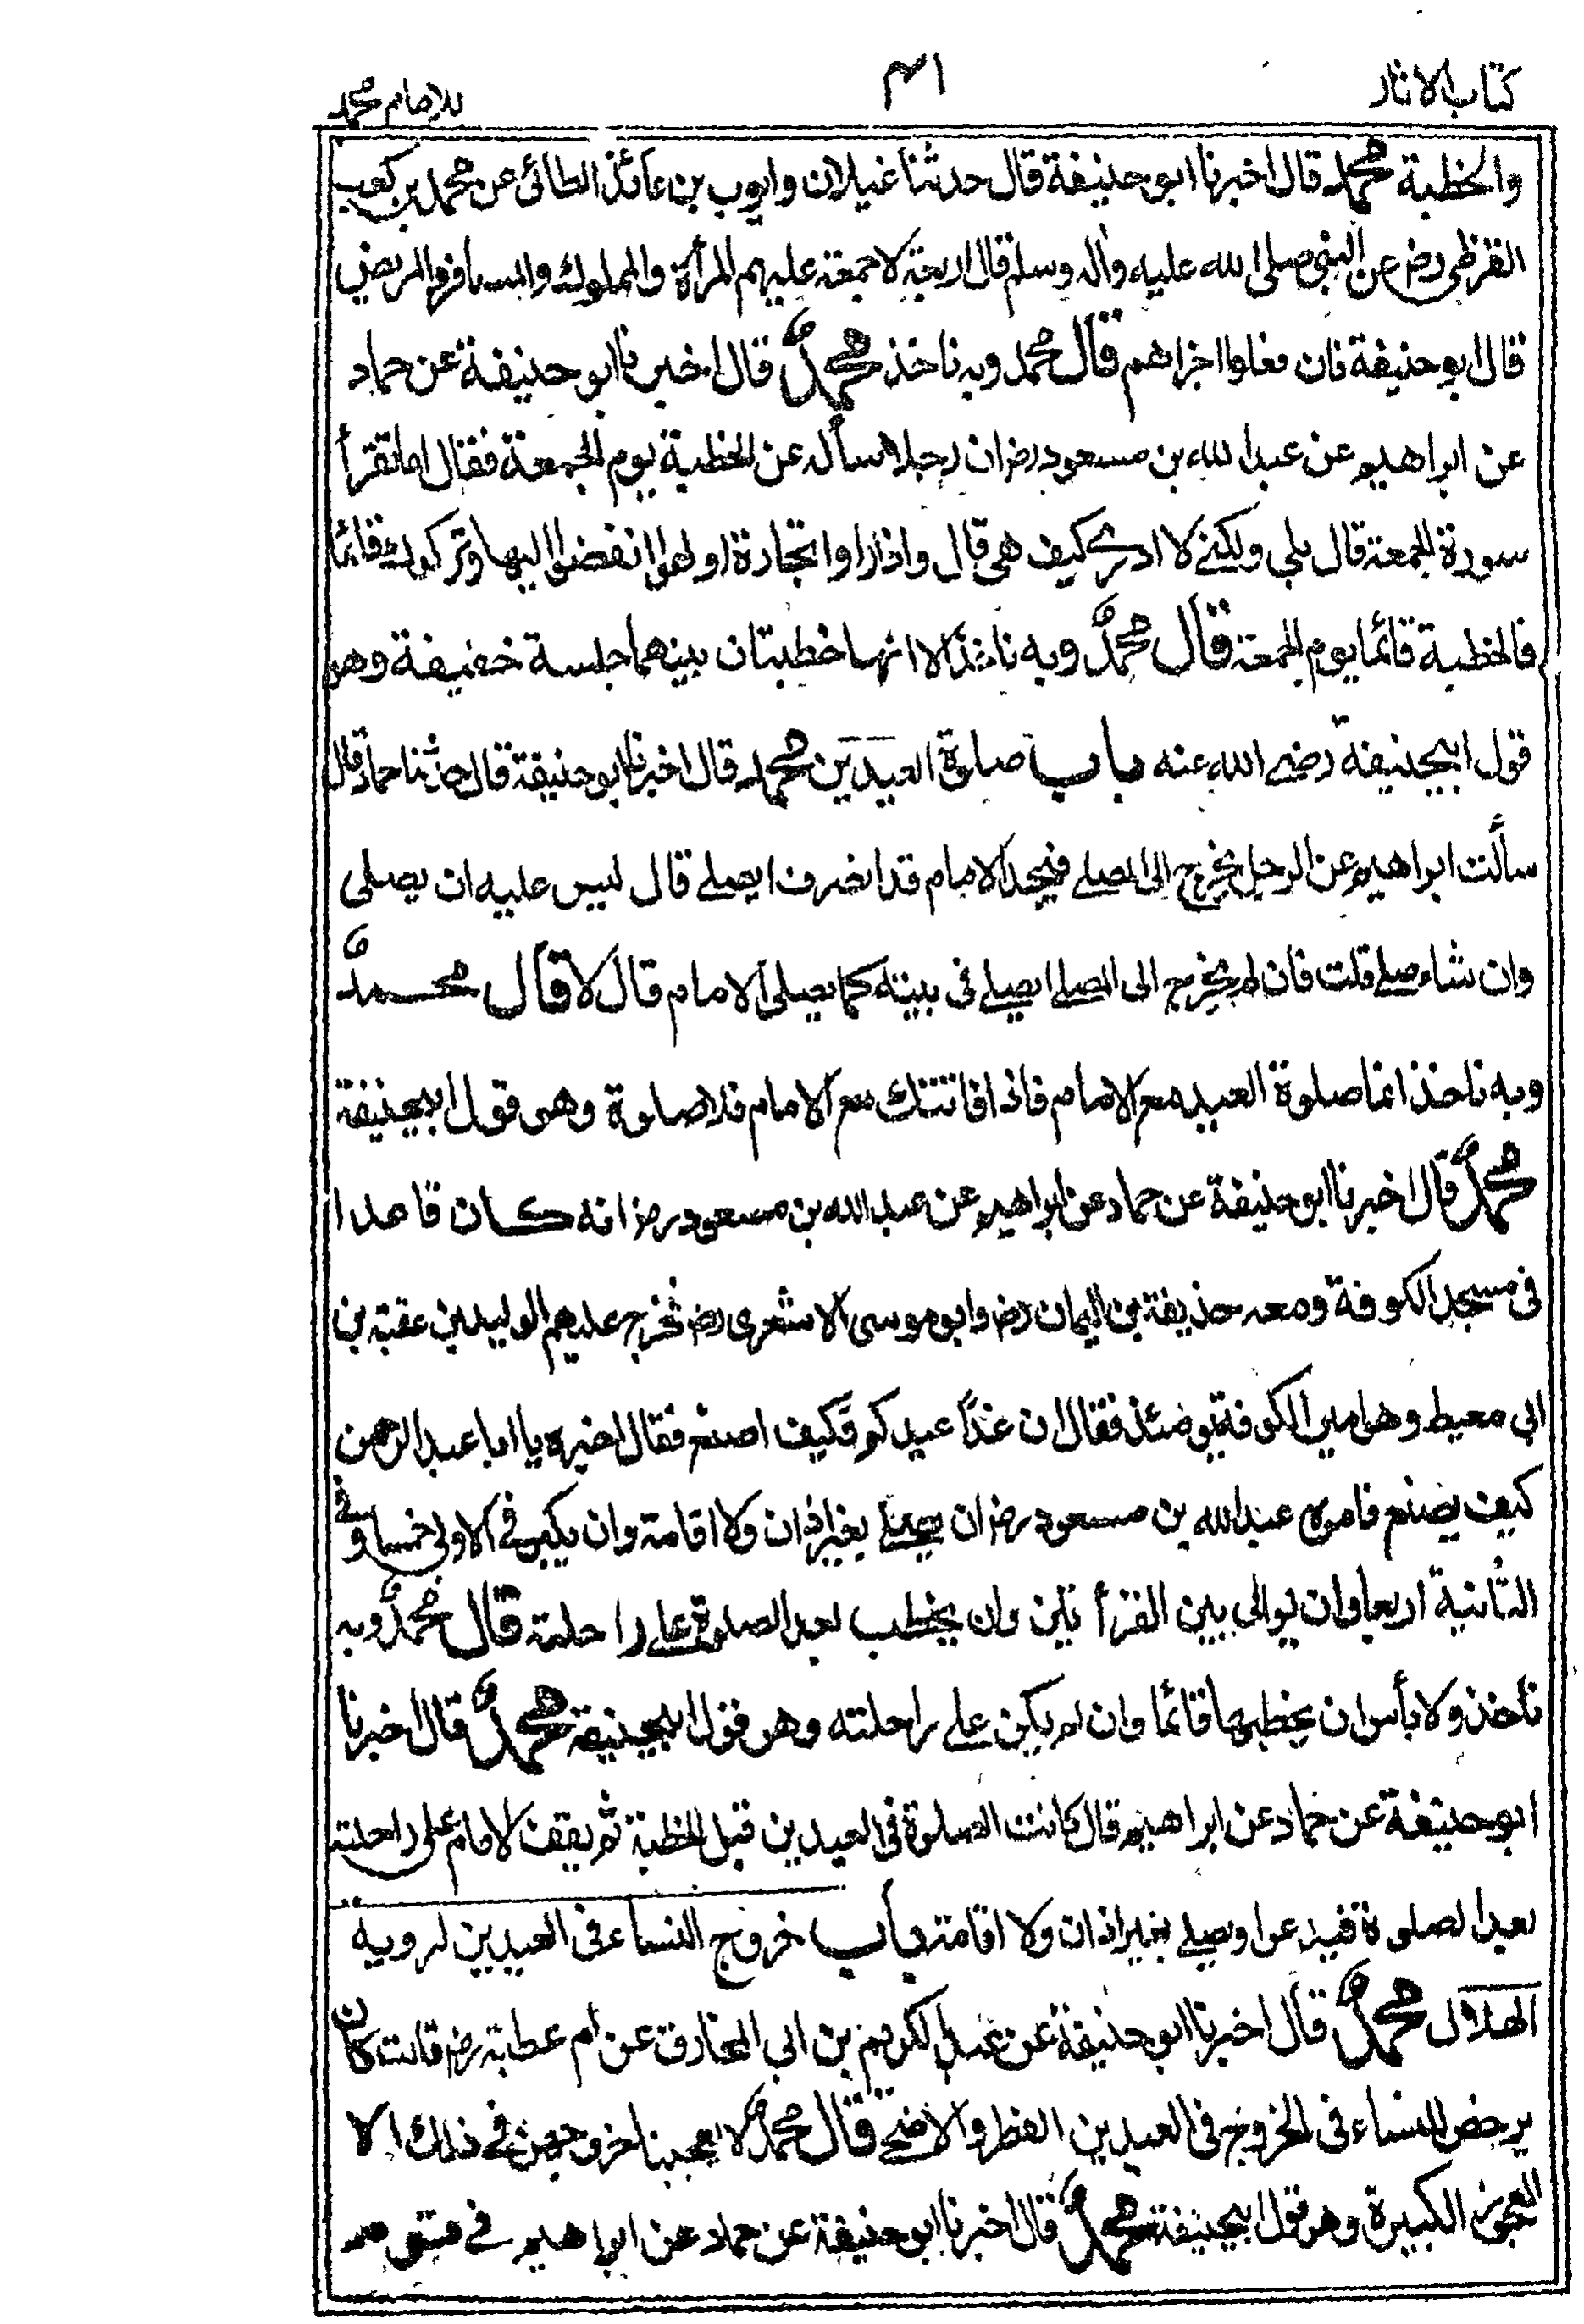 كتاب الاثار
٤١
للامام محمد
والخطبة محمد قال اخبرنا ابو حنيفة قال حدثنا غيلان وايوب بن عائذ الطائى عن محمد بن كعب
القرظى رضـ عن النبى صلى الله عليه واله وسلم قال اربعة لا جمعة عليهم المرأة والمملوك والمسافر والمريض
قال ابو حنيفة فان فعلوا اجزاهم قال محمد وبه ناخذ محمدٌ قال اخبرنا ابو حنيفة عن حماد
عن ابراهيم عن عبد الله بن مسعود رضـ ان رجلا سأله عن الخطبة يوم الجمعة فقال اما تقرأ
سورة الجمعة قال بلى ولكنى لا ادرى كيف هى قال واذا راوا تجارة او لهوا انفضوا اليها وتركوك قائما
فالخطبة قائما يوم الجمعة قال محمدٌ وبه ناخذ الا انها خطبتان بينهما جلسة خفيفة وهو
قول ابيحنيفة رضى الله عنه باب صلوة العيدين محمد قال اخبرنا ابو حنيفة قال حدثنا حماد قال
سألت ابراهيم عن الرجل يخرج الى المصلى فيجد الامام قد انصرف ايصلى قال ليس عليه ان يصلى
وان شاء صلى قلت فان لم يخرج الى المصلى ايصلى فى بيته كما يصلى الامام قال لا قال محمدٌ
وبه ناخذ انما صلوة العيد مع الامام فاذا فاتتك مع الامام فلا صلوة وهو قول ابيحنيفة
محمدٌ قال اخبرنا ابو حنيفة عن حماد عن ابراهيم عن عبد الله بن مسعود رضـ انه كان قاعدا
فى مسجد الكوفة ومعه حذيفة بن اليمان رضـ وابو موسى الاشعرى رضـ فخرج عليهم الوليد بن عقبة بن
ابى معيط وهو امير الكوفة يومئذ فقال ان غدًا عيدكم فكيف اصنع فقال اخبره يا ابا عبد الرحمن
كيف يصنع فامره عبد الله بن مسعود رضـ ان يصلى بغير اذان ولا اقامة وان يكبر فى الاولى خمسا وفى
الثانية اربعا وان يوالى بين القرأتين وان يخطب بعد الصلوة على راحلته قال محمدٌ وبه
نأخذ ولا بأس ان يخطبها قائما وان لم يكن على راحلته وهو قول ابيحنيفة محمدٌ قال اخبرنا
ابو حنيفة عن حماد عن ابراهيم قال كانت الصلوة فى العيدين قبل الخطبة ثم يقف الامام على راحلته
بعد الصلوة فيدعوا ويصلى بغير اذان ولا اقامة باب خروج النساء فى العيدين لروية
الهلال محمدٌ قال اخبرنا ابو حنيفة عن عبد الكريم بن ابى المخارق عن أم عطية رضـ قالت كان
يرخص للنساء فى الخروج فى العيدين الفطر والاضحى قال محمدٌ لا يعجبنا خروجهن فى ذلك الا
العجوز الكبيرة وهو قول ابيحنيفة محمدٌ قال اخبرنا ابو حنيفة عن حماد عن ابراهيم فى